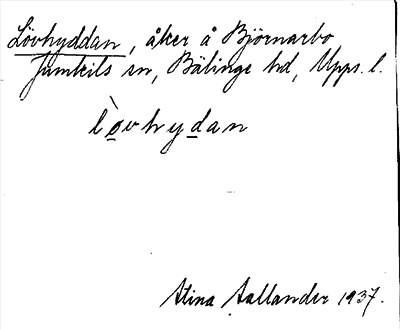 Lövhyddan, åker å Björnarbo
Jumkils sn, Bälinge hd, Upps. l.
lò̲vhyd̲an
Stina Aallander 1937.